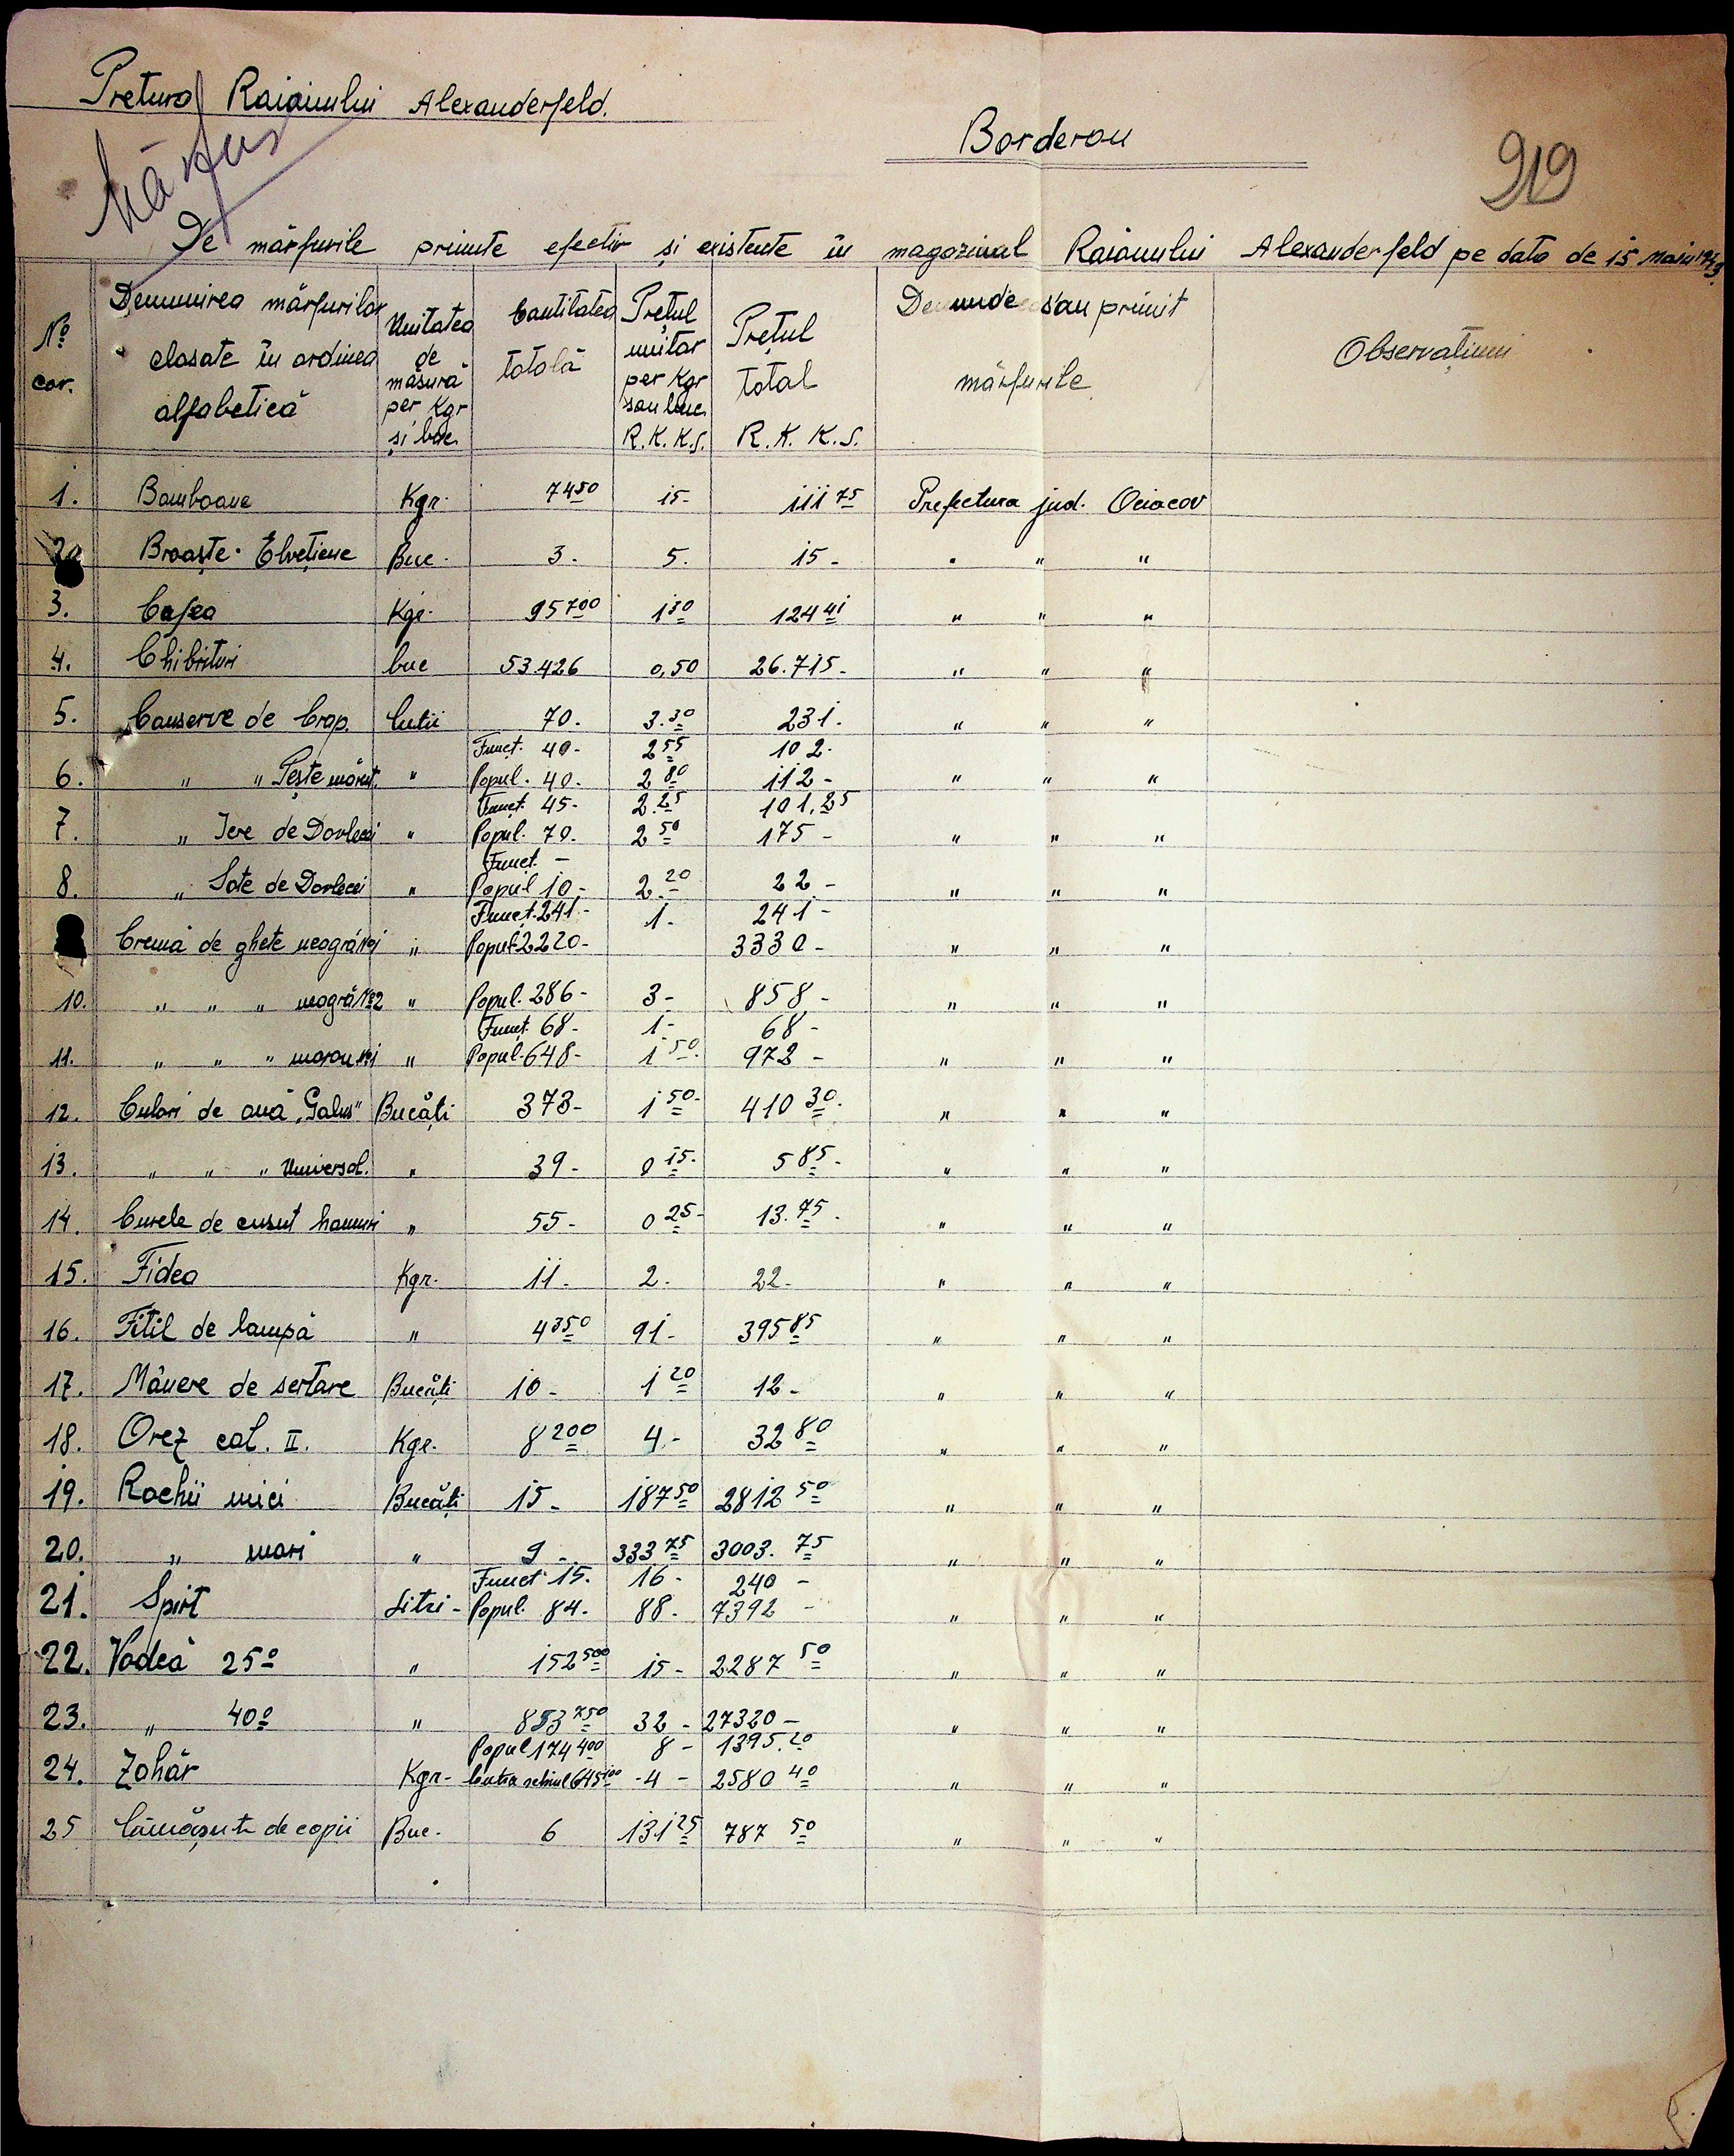 Pretura Raionului Alexanderfeld.
Borderou
919
De mărfurile primite efectiv și existente în magazinul Raionului Alexanderfeld pe data de 15 Maiu 1943
No cor. | Denumirea mărfurilor clasate în ordinea alfabetică | Unitatea de măsură per Kgr și buc. | Cantitatea totală | Prețul unitar per Kgr sau buc. R.K.K.S. | Prețul total R.K.K.S. | De unde s'au primit mărfurile | Observațiuni
1. Bomboane Kgr. 7450 15- 111 75 Prefectura jud. Ociacov
2. Broaște Elvețiene Buc. 3. 5. 15- " " "
3. Cafea Kgr. 95700 1 30 124 41 " " "
4. Chibrituri buc 53.426 0,50 26.715- " " "
5. Conserve de Crap. Cutii 70. 3.30 231. " " "
Funcț. 40- 2 55 102.
6. " " Pește mărunt " Popul. 40. 2 80 112- " " "
Funcț. 45- 2.25 101.25
7. " Icre de Dovlecei " Popul. 70. 2 50 175- " " "
Funcț. -
8. " Sote de Dovlecei " Popul 10- 2.20 22- " " "
Funcț. 241.- 1. 241-
Cremă de ghete neagră No1 " Popul 2220- 3330- " " "
10. " " " neagră No2 " Popul. 286- 3- 858- " " "
Funcț. 68- 1- 68-
11. " " " maron No1 " Popul. 648- 1 50. 972- " " "
12. Culori de ouă "Galus" Bucăți 373- 1 50- 410 30. " " "
13. " " " Universal. " 39- 0 15. 5 85- " " "
14. Curele de cusut hamuri " 55- 0 25- 13.75. " " "
15. Fidea Kgr. 11- 2. 22- " " "
16. Fitil de lampă " 4350 91- 395 85 " " "
17. Mânere de sertare Bucăți 10- 1 20 12- " " "
18. Orez cal. II. Kgr. 8 200 4- 32 80 " " "
19. Rochii mici Bucăți 15- 187 50 2812 50 " " "
20. " mari " 9- 333 75 3003.75 " " "
Funcț 15. 16- 240-
21. Spirt Litri- Popul. 84. 88. 7392- " " "
22. Vodcă 25° " 152 500 15- 2287 50 " " "
23. " 40° " 853 750 32- 27320- " " "
Popul 174 400 8- 1395.20
24. Zahăr Kgr- Contra schimb 645 100 -4- 2580 40 " " "
25 Cămășuțe de copii Buc. 6 131 25 787 50 " " "